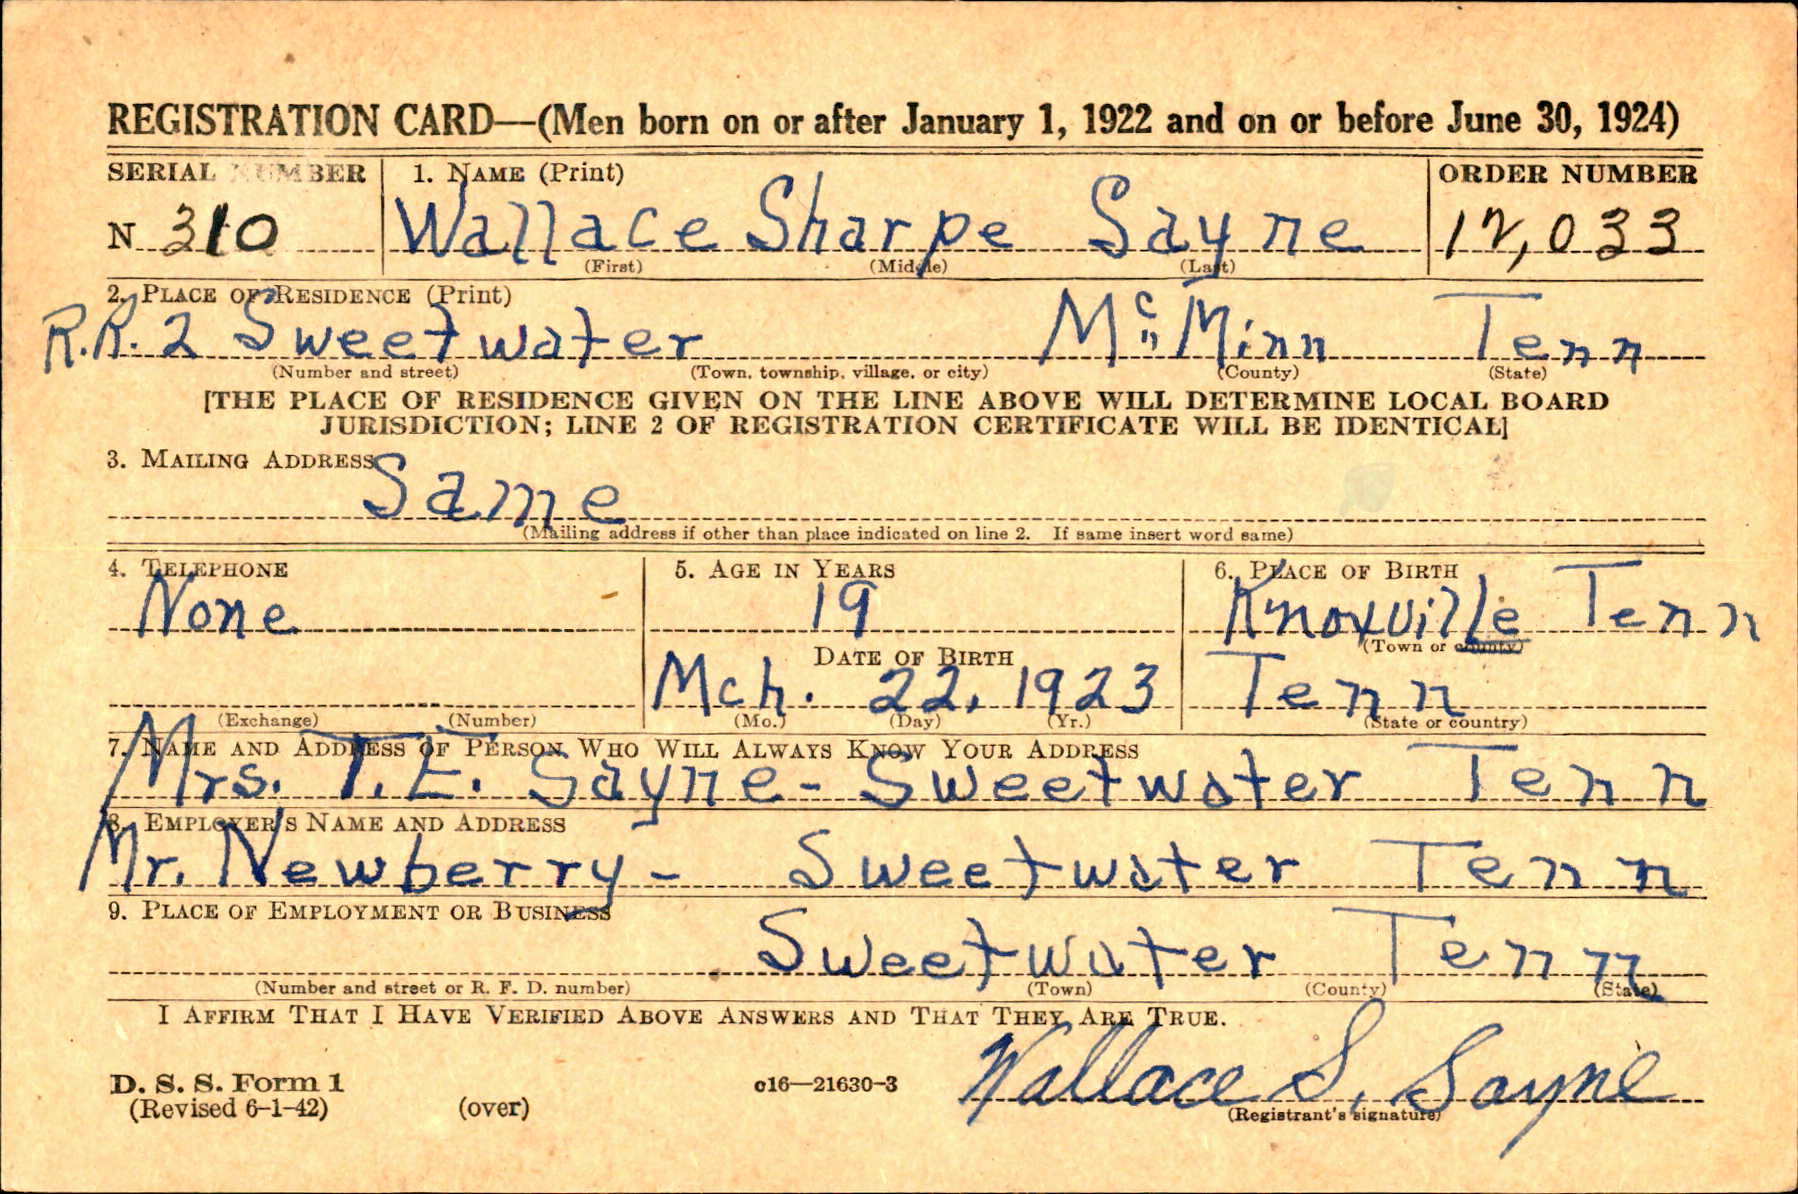 REGISTRATION CARD—(Men born on or after January 1, 1922 and on or before June 30, 1924)
SERIAL NUMBER 1. NAME (Print) ORDER NUMBER
N 310 Wallace Sharpe Sayne 12,033
(First) (Middle) (Last)
2. PLACE OF RESIDENCE (Print)
R.R. 2 Sweetwater McMinn Tenn
(Number and street) (Town, township, village, or city) (County) (State)
[THE PLACE OF RESIDENCE GIVEN ON THE LINE ABOVE WILL DETERMINE LOCAL BOARD
JURISDICTION; LINE 2 OF REGISTRATION CERTIFICATE WILL BE IDENTICAL]
3. MAILING ADDRESS
Same
(Mailing address if other than place indicated on line 2. If same insert word same)
4. TELEPHONE 5. AGE IN YEARS 6. PLACE OF BIRTH
None 19 Knoxville Tenn
DATE OF BIRTH (Town or county)
Mch. 22, 1923 Tenn
(Exchange) (Number) (Mo.) (Day) (Yr.) (State or country)
7. NAME AND ADDRESS OF PERSON WHO WILL ALWAYS KNOW YOUR ADDRESS
Mrs. T. E. Sayne - Sweetwater Tenn
8. EMPLOYER'S NAME AND ADDRESS
Mr. Newberry - Sweetwater Tenn
9. PLACE OF EMPLOYMENT OR BUSINESS
Sweetwater Tenn
(Number and street or R. F. D. number) (Town) (County) (State)
I AFFIRM THAT I HAVE VERIFIED ABOVE ANSWERS AND THAT THEY ARE TRUE.
D. S. S. Form 1 c16—21630-3 Wallace S. Sayne
(Revised 6-1-42) (over) (Registrant's signature)